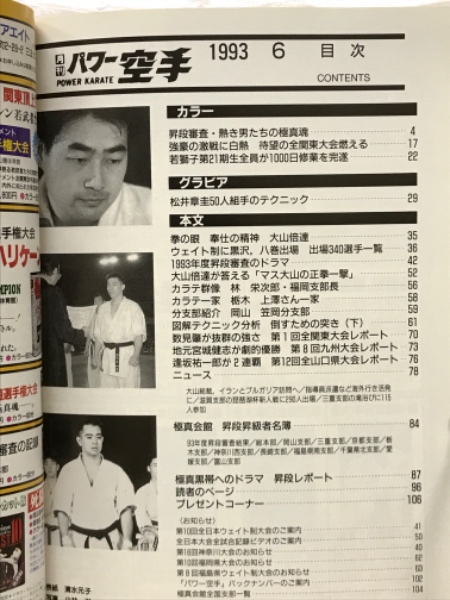 月刊 パワー空手 1993 6 目次
POWER KARATE
CONTENTS
カラー
昇段審査・熱き男たちの極真魂 4
強豪の激戦に白熱 待望の全関東大会燃える 17
若獅子第21期生全員が1000日修業を完遂 22
グラビア
松井章圭50人組手のテクニック 29
本文
拳の眼 奉仕の精神 大山倍達 35
ウェイト制に黒沢,八巻出場 出場340選手一覧 36
1993年度昇段審査のドラマ 42
大山倍達が答える「マス大山の正拳一撃」 52
カラテ群像 林 栄次郎・福岡支部長 56
カラテ一家 栃木 上澤さん一家 58
分支部紹介 岡山 笠岡分支部 59
図解テクニック分析 倒すための突き(下) 61
数見肇が抜群の強さ 第1回全関東大会レポート 70
地元宮城健志が劇的優勝 第8回九州大会レポート 73
逢坂祐一郎が2連覇 第12回全山口県大会レポート 76
ニュース 78
大山総裁,イランとブルガリア訪問へ/指導員派遣など海外行き活発
に/滋賀支部の琵琶湖杯新人戦に290人出場/三重支部の滝浴びに115
人参加
極真会館 昇段昇級者名簿 84
93年度昇段審査結果/総本部/岡山支部/三重支部/京都支部/栃
木支部/神奈川西支部/長崎支部/福島県南支部/千葉県北支部/愛
媛支部/富山支部
極真黒帯へのドラマ 昇段レポート 87
読者のページ 96
プレゼントコーナー 106
〈お知らせ〉
第10回全日本ウェイト制大会のご案内 41
全日本大会全試合記録ビデオのご案内 50
第16回神奈川大会のお知らせ 40
第10回福岡県大会のお知らせ 62
第8回福島県ウェイト制大会のお知らせ 60
「パワー空手」バックナンバーのご案内 102
極真会館全国支部一覧 104
表紙 清水元子